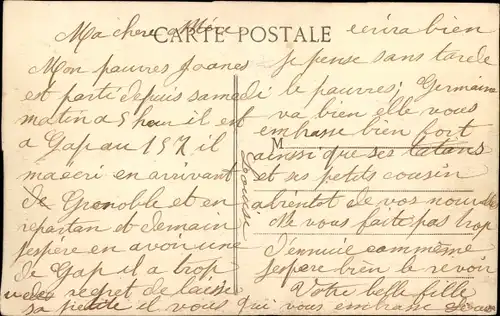 CARTE POSTALE
Ma chere Mère
Mon pauvres Joanes
est parti depuis samedi
matin a 5 heur il est
a Gap au 157 il
ma ecri en arrivant
de Grenoble et en
repartan demain
j'espére en avoir une
de Gap il a trop
regret de laisse
sa petite il vous
ecrira bien
je pense sans tarde
le pauvres; Germaine
va bien elle vous
embrasse bien fort
M
ainssi que ses tatans
et ses petits cousin
a bientot de vos nouvelle
Ne vous faite pas trop
d'ennuie comme même
j'espere bien le revoir
Votre belle fille
qui vous embrasse
Louise